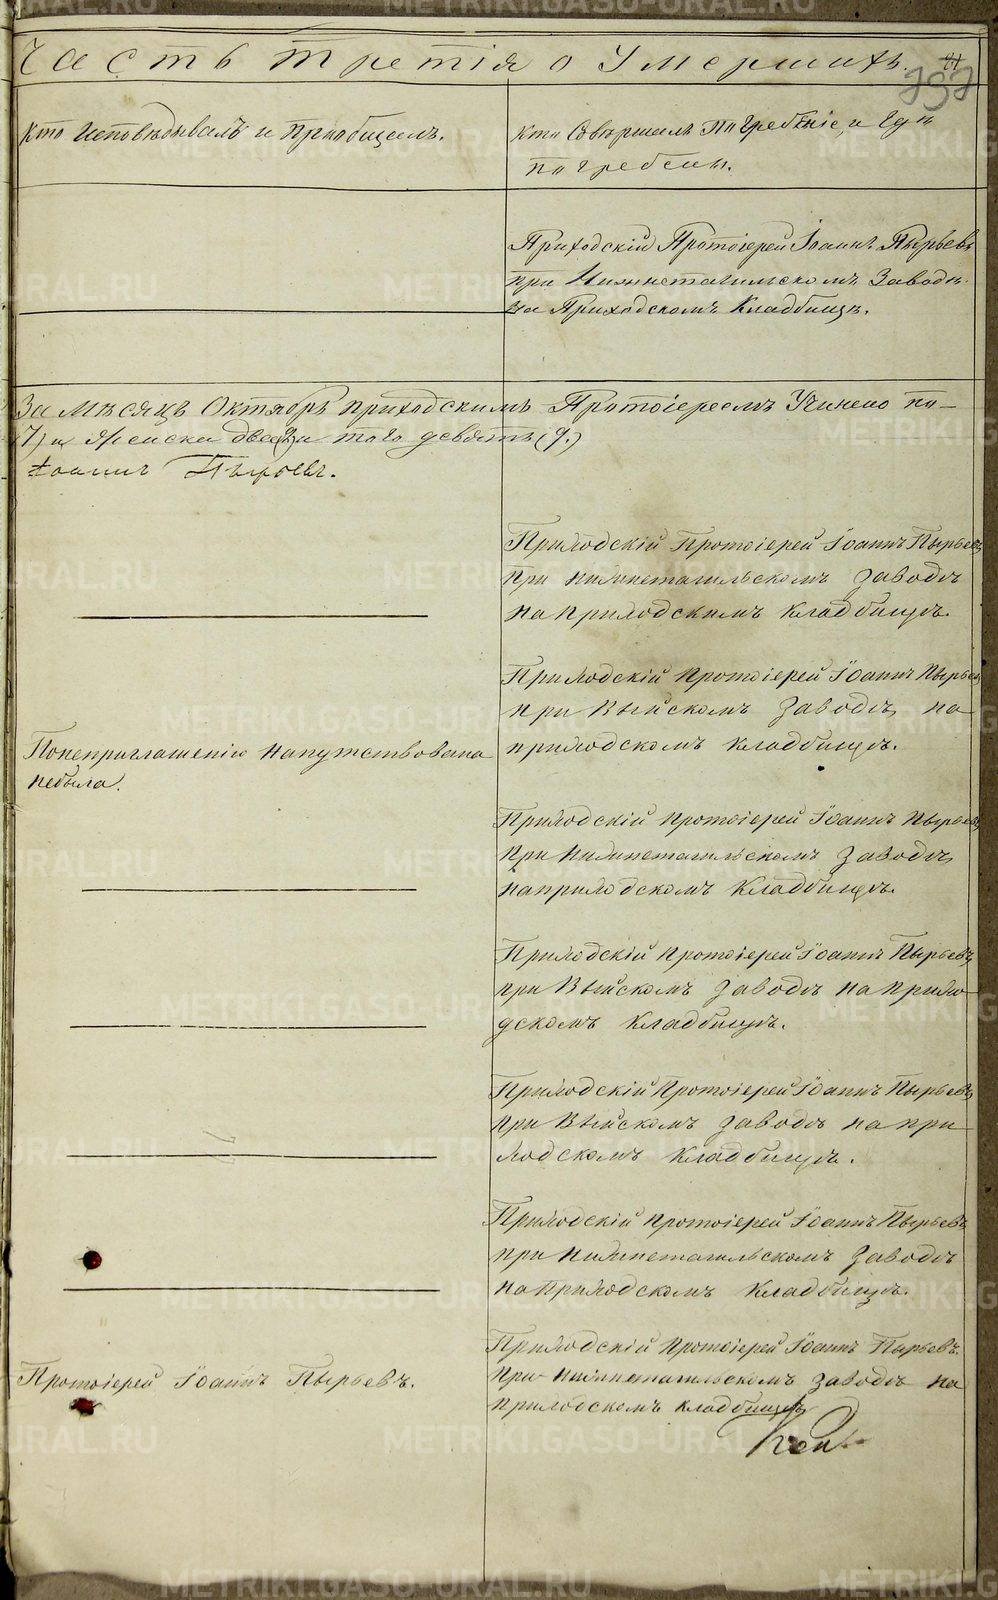 Часть третія о Умершихъ.
Кто Исповѣдывалъ и Пріобщалъ.
Кто Совершалъ Погребеніе, и Гдѣ
погребены.
Приходскій Протоіерей Іоаннъ Пырьевъ
при Нижнетагильскомъ Заводѣ
На Приходскомъ Кладбищѣ.
За мѣсяцъ Октябрь приходскимъ Протоіереемъ Учинено по-
7) и женска два, и того девять (9.)
Іоаннъ Пырьевъ.
Приходскій Протоіерей Іоаннъ Пырьевъ
при Нижнетагильскомъ заводѣ
на приходскомъ кладбищѣ.
Приходскій протоіерей Іоаннъ Пырьевъ
при Выйскомъ заводѣ, на
приходскомъ кладбищѣ.
Понеприглашенію напутствована
небыла.
Приходскій протоіерей Іоаннъ Пырьевъ
При Нижнетагильскомъ заводѣ,
наприходскомъ кладбищѣ.
Приходскій протоіерей Іоаннъ Пырьевъ,
при Выйскомъ заводѣ на прихо-
дскомъ кладбищѣ.
Приходскій Протоіерей Іоаннъ Пырьевъ,
при Выйскомъ заводѣ на при-
ходскомъ кладбищѣ.
Приходскій протоіерей Іоаннъ Пырьевъ
при Нижнетагильскомъ заводѣ
на Приходскомъ кладбищѣ.
Приходскій протоіерей Іоаннъ Пырьевъ.
При Нижнетагильскомъ заводѣ на
приходскомъ кладбищѣ
Протоіерей Іоаннъ Пырьевъ.
METRIKI.GASO-URAL.RU